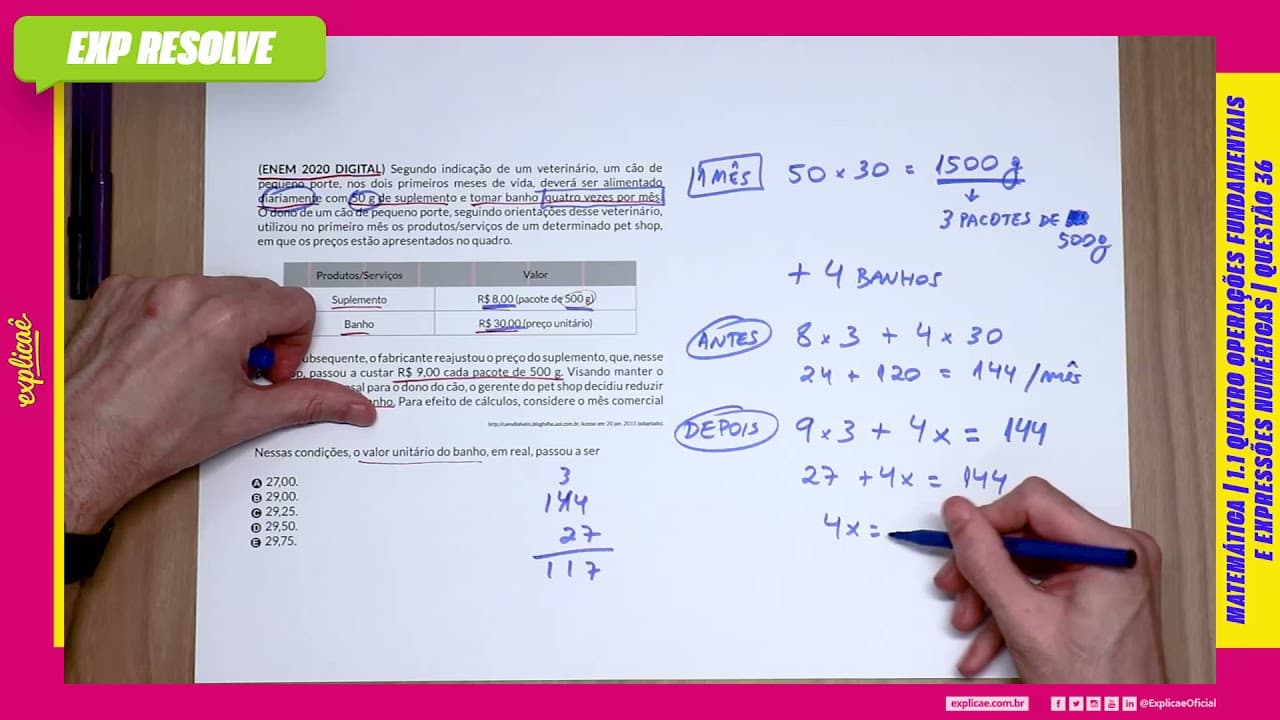 EXP RESOLVE
(ENEM 2020 DIGITAL) Segundo indicação de um veterinário, um cão de
pequeno porte, nos dois primeiros meses de vida, deverá ser alimentado
diariamente com 50 g de suplemento e tomar banho quatro vezes por mês.
O dono de um cão de pequeno porte, seguindo orientações desse veterinário,
utilizou no primeiro mês os produtos/serviços de um determinado pet shop,
em que os preços estão apresentados no quadro.
Produtos/Serviços Valor
Suplemento R$ 8,00 (pacote de 500 g)
Banho R$ 30,00 (preço unitário)
subsequente, o fabricante reajustou o preço do suplemento, que, nesse
passou a custar R$ 9,00 cada pacote de 500 g. Visando manter o
para o dono do cão, o gerente do pet shop decidiu reduzir
Para efeito de cálculos, considere o mês comercial
Nessas condições, o valor unitário do banho, em real, passou a ser
A 27,00.
B 29,00.
C 29,25.
D 29,50.
E 29,75.
3
144
27
117
1 MÊS 50 x 30 = 1500 g
↓
3 PACOTES DE
500g
+ 4 BANHOS
ANTES 8 x 3 + 4 x 30
24 + 120 = 144 /MÊS
DEPOIS 9 x 3 + 4x = 144
27 + 4x = 144
4x =
explicaê
MATEMÁTICA | 1.1 QUATRO OPERAÇÕES FUNDAMENTAIS
E EXPRESSÕES NUMÉRICAS | QUESTÃO 36
explicae.com.br @ExplicaeOficial